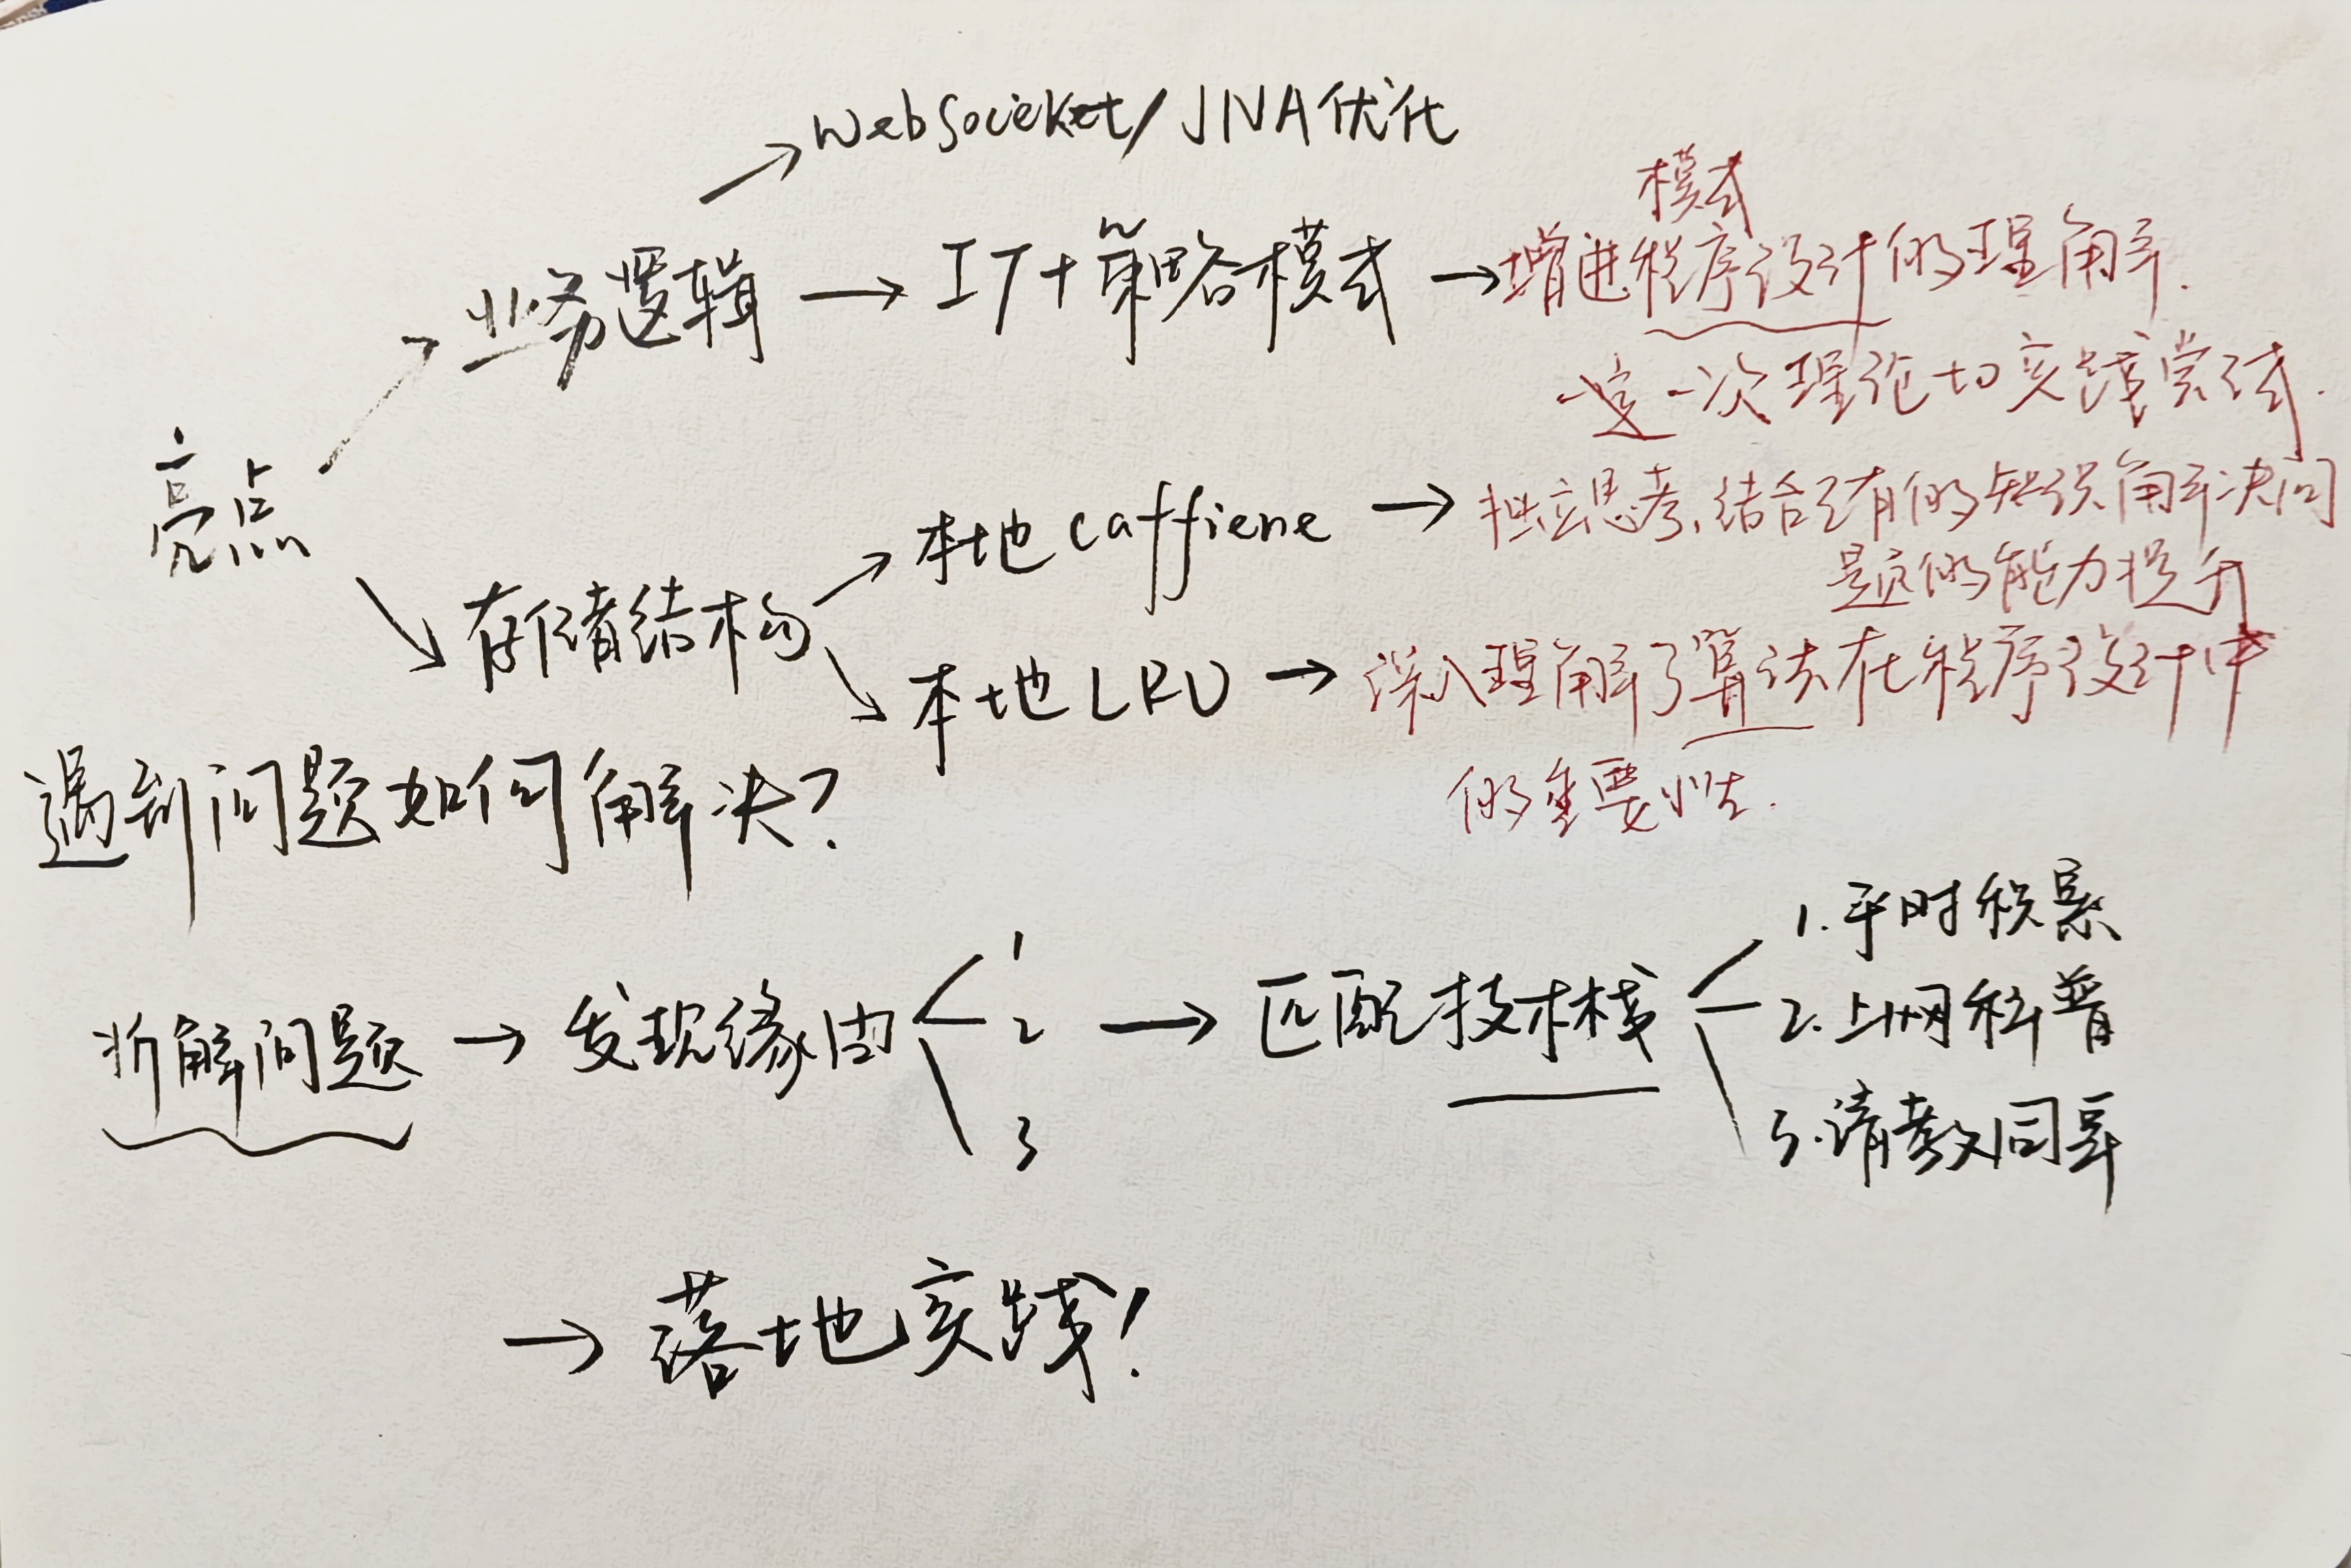 WebSocieket/JNA优化
模式
业务逻辑 → IT+策略模式 → 增进程序设计的理解.
是一次理论切实践尝试.
亮点
本地caffiene → 独立思考,结合已有的知识解决问
题的能力提升
存储结构
本地LRU → 深入理解了算法在程序设计中
的重要性.
遇到问题如何解决?
1.平时积累
拆解问题 → 发现缘由 1 2 3 → 匹配技术栈
2.上网科普
3.请教同事
→ 落地实践!